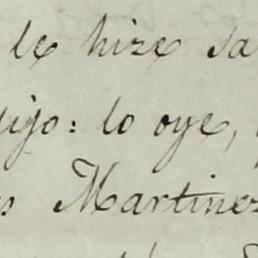 le hize sa
dijo: lo oye,
s Martinez